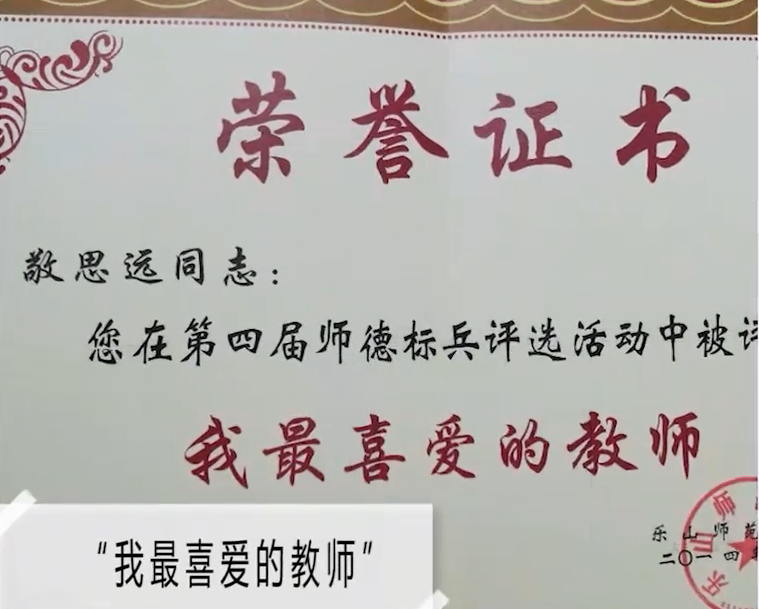 荣誉证书
敬思远同志：
您在第四届师德标兵评选活动中被评
我最喜爱的教师
乐山师范
二〇一四年
“我最喜爱的教师”